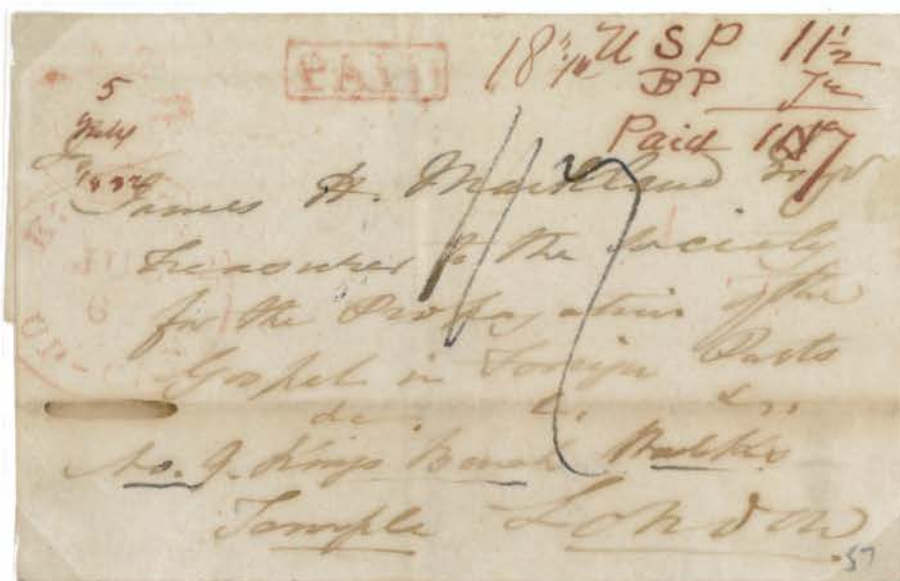 PAID
18 3/4 U S P 11 1/2
BP 7
Paid 1/7
5
July
James H. Markland Esqr
Treasurer to the Society
for the Propagation of the
Gospel in Foreign Parts
&c. &c. &c.
No. 9. Kings Bench Walks
Temple London
57